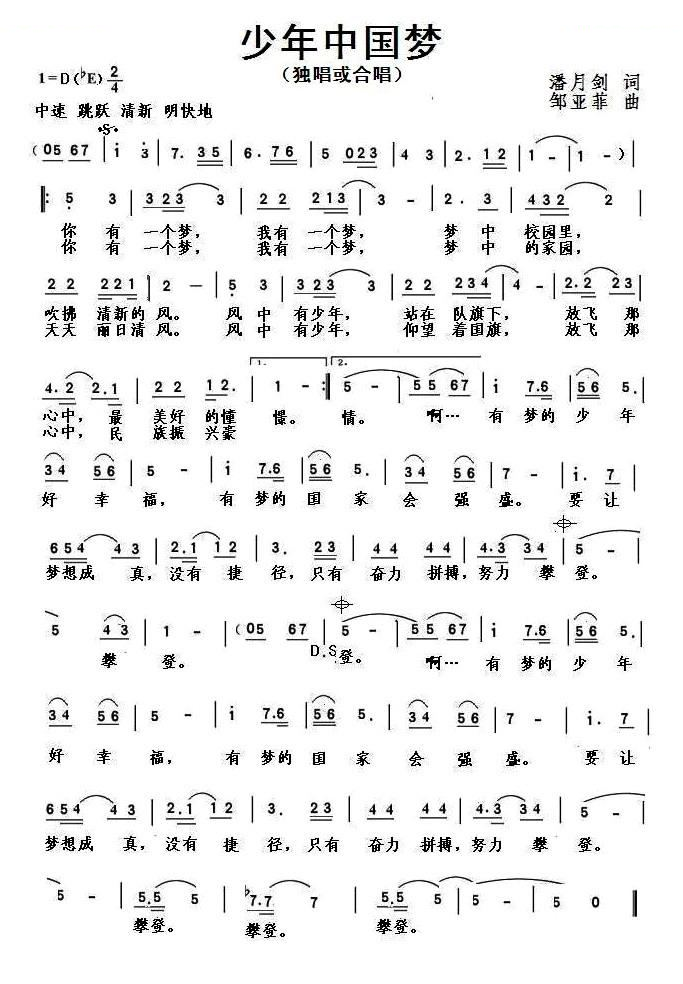 少年中国梦
（独唱或合唱）
1=D（♭E）2/4
潘月剑 词
邹亚菲 曲
中速 跳跃 清新 明快地
（05 67 | i 3 | 7. 35 | 6. 76 | 5 023 | 4 3 | 2. 12 | 1 - | 1 - ）|
‖: 5 3 | 323 3 | 2 2 | 213 3 | 2 - | 2. 3 | 432 2 |
你 有 一个梦， 我有 一个 梦， 梦 中 校园里，
你 有 一个梦， 我有 一个 梦， 梦 中 的家园，
22 221 | 2 - | 5 3 | 323 3 | 22 234 | 4 5 | 2.2 23 |
吹拂 清新的 风。 风 中 有少年， 站在 队旗下， 放飞 那
天天 丽日清 风。 风 中 有少年， 仰望 着国旗， 放飞 那
4.2 2.1 | 22 12. | 1. 1 - :‖ 2. 5 - | 55 67 | i 7.6 | 56 5. |
心中， 最 美好 的憧 憬。 情。 啊… 有 梦的 少 年
心中， 民 族振 兴豪
34 56 | 5 - | i 7.6 | 56 5. | 34 56 | 7 - | i. 7 |
好 幸 福， 有 梦的 国 家 会 强 盛。 要让
654 43 | 2.1 12 | 3. 23 | 44 44 | 4.3 34 | 5 - |
梦想成 真，没有 捷 径，只有 奋力 拼搏，努力 攀 登。
5 43 | 1 - | （05 67 | 5 - | 55 67 | i 7.6 | 56 5. |
攀 登。 D.S 登。 啊… 有 梦的 少 年
34 56 | 5 - | i 7.6 | 56 5. | 34 56 | 7 - | i. 7 |
好 幸 福， 有 梦的 国 家 会 强 盛。 要让
654 43 | 2.1 12 | 3. 23 | 44 44 | 4.3 34 | 5 - |
梦想成 真，没有 捷 径，只有 奋力 拼搏，努力 攀 登。
5 - | 5.5 5 | ♭7.7 7 | 5.5 5 | 5 - | 5 0 ‖
攀登。 攀登。 攀登。